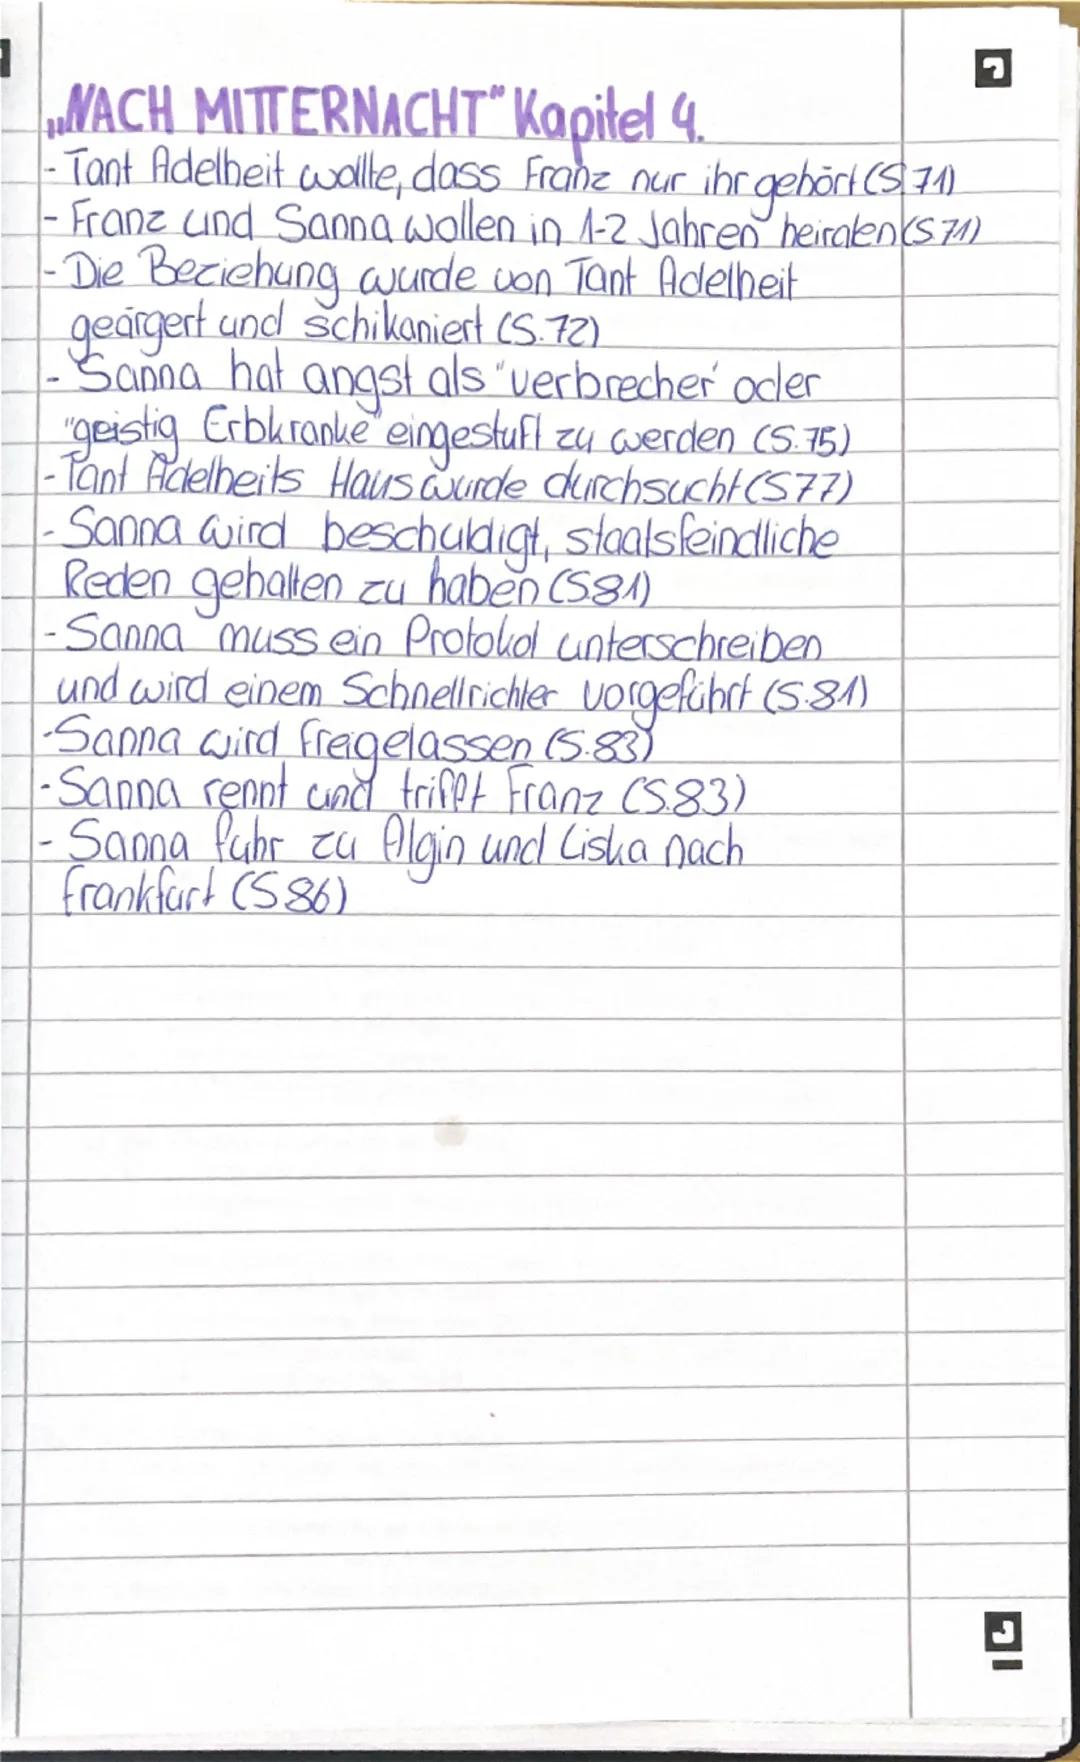 „NACH MITTERNACHT" Kapitel 4.
- Tant Adelheit wollte, dass Franz nur ihr gehört (S.71)
- Franz und Sanna wollen in 1-2 Jahren heiraten (S.71)
- Die Beziehung wurde von Tant Adelheit
geärgert und schikaniert (S.72)
- Sanna hat angst als "verbrecher" oder
"geistig Erbkranke" eingestuft zu werden (S.75)
- Tant Adelheits Haus wurde durchsucht (S77)
- Sanna wird beschuldigt, staatsfeindliche
Reden gehalten zu haben (S81)
- Sanna muss ein Protokol unterschreiben
und wird einem Schnellrichter vorgeführt (S.81)
- Sanna wird freigelassen (S.83)
- Sanna rennt und trifft Franz (S.83)
- Sanna fuhr zu Algin und Liska nach
Frankfurt (S86)